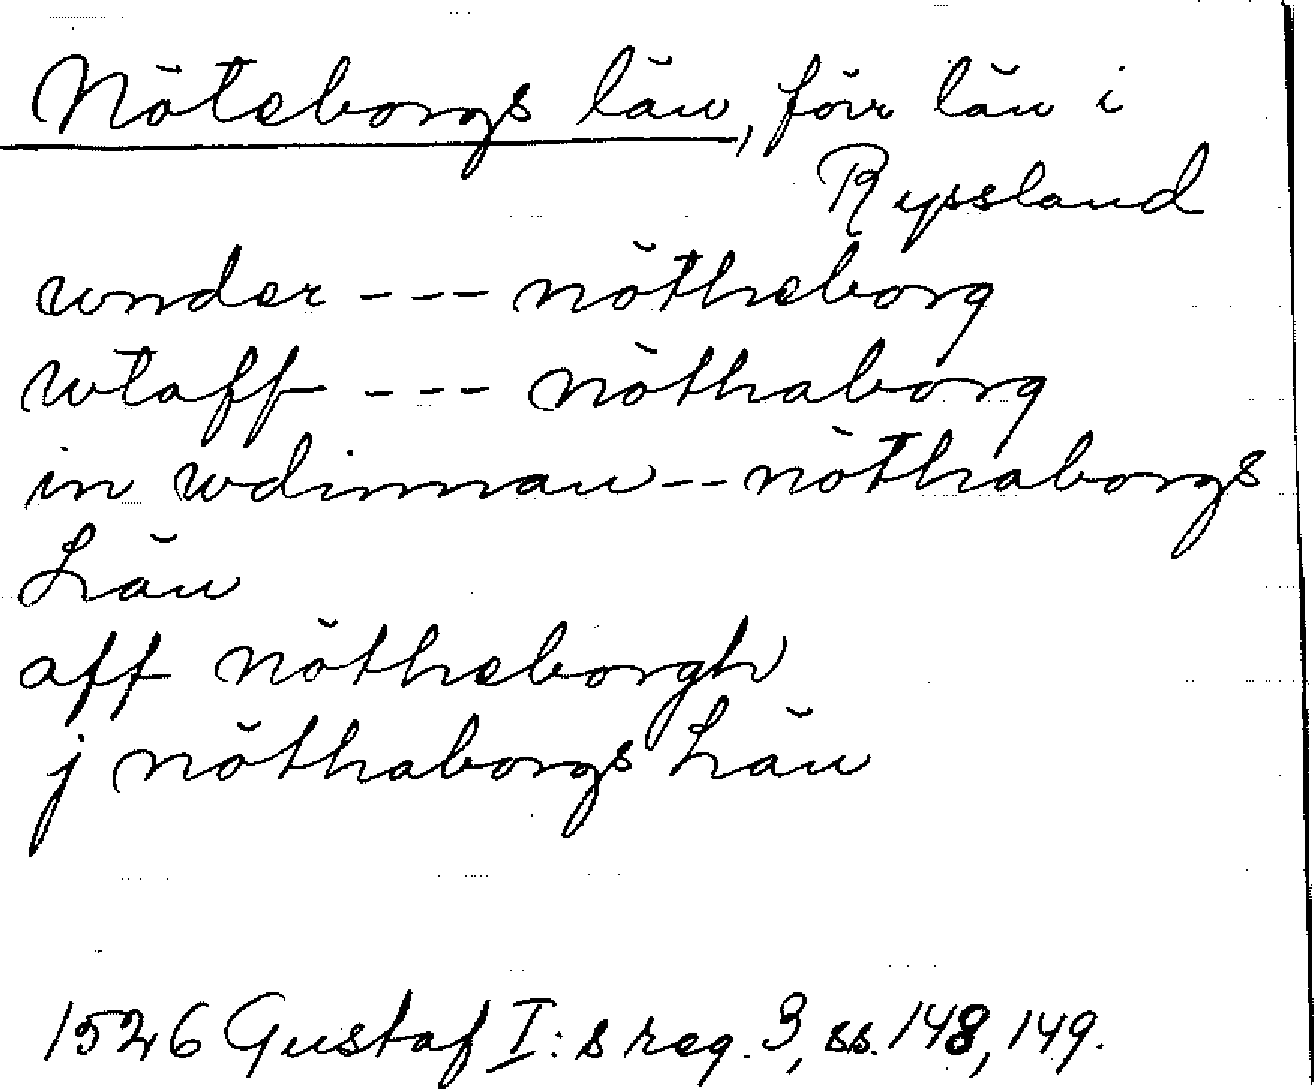 Nöteborgs län, förr län i
Ryssland
wnder --- nötheborg
wtaff --- nöthaborg
in wdinnan -- nöthaborgs
Län
aff nötheborgh
j nöthaborgs Län
1526 Gustaf I:s reg. 3, ss. 148, 149.